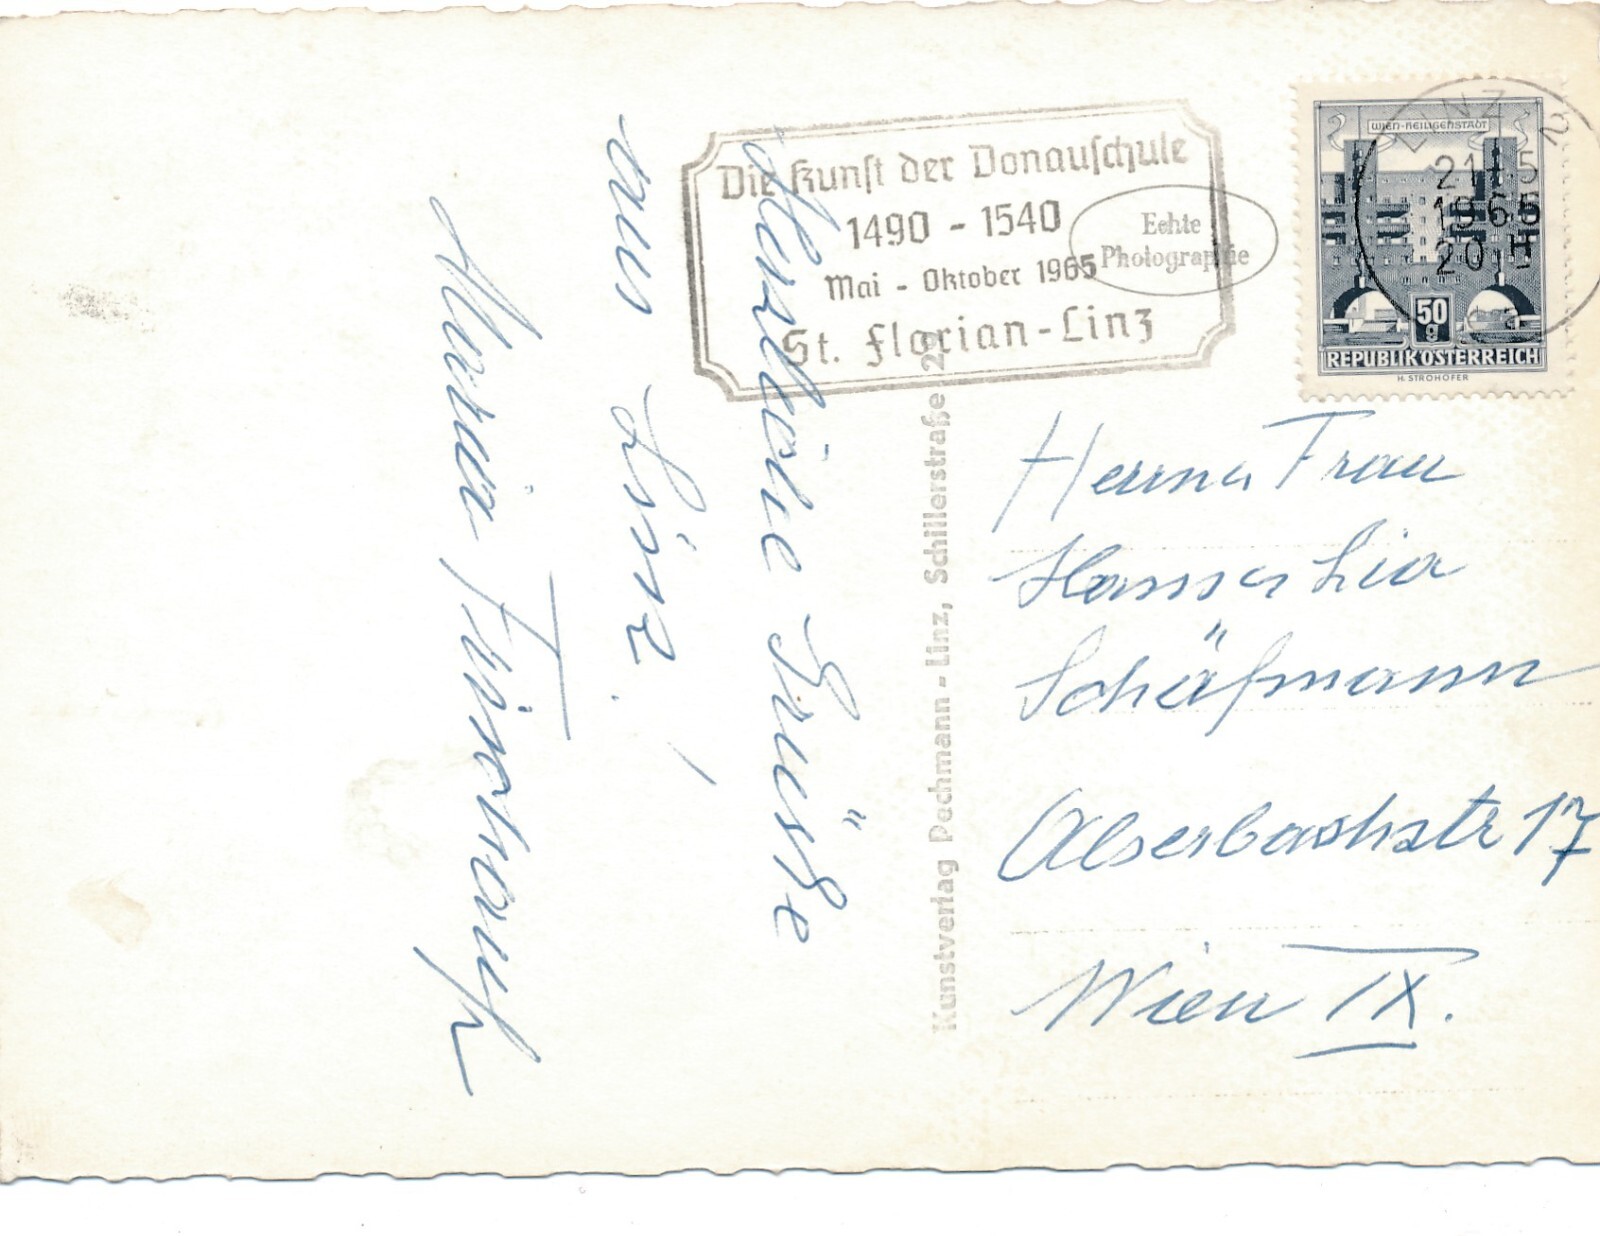 Herzliche Grüße
aus Linz!
Maria
Die Kunst der Donauschule
1490 - 1540
Mai - Oktober 1965
St. Florian-Linz
Echte
Photographie
WIEN-HEILIGENSTADT
LINZ 2
21. 5
1965
20 H
50
g
REPUBLIK ÖSTERREICH
H. STROHOFER
Kunstverlag Pechmann - Linz, Schillerstraße
Herrn u Frau
Hans u Lia
Schäfmann
Alserbachstr 17
Wien IX.